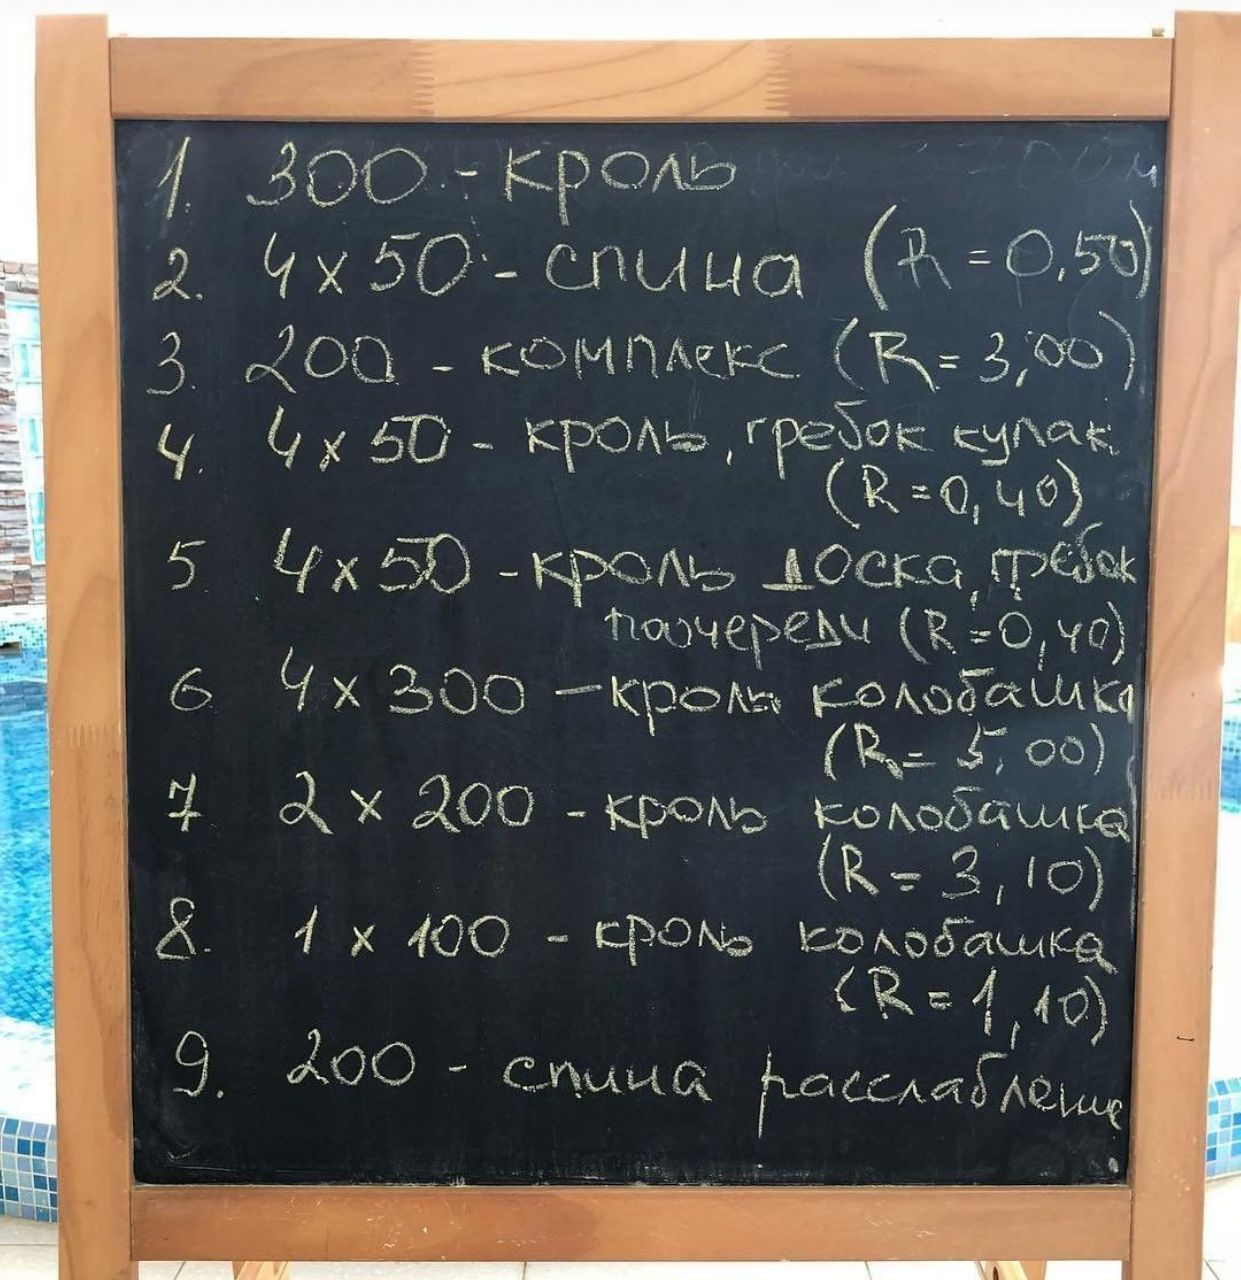 1. 300 - кроль
2. 4 x 50 - спина (R = 0,50)
3. 200 - комплекс (R = 3,00)
4. 4 x 50 - кроль, гребок кулак
(R = 0,40)
5 4 x 50 - кроль доска, гребок
поочереди (R = 0,40)
6 4 x 300 - кроль колобашка
(R = 5,00)
7 2 x 200 - кроль колобашка
(R = 3,10)
8. 1 x 100 - кроль колобашка
(R = 1,10)
9. 200 - спина расслабление